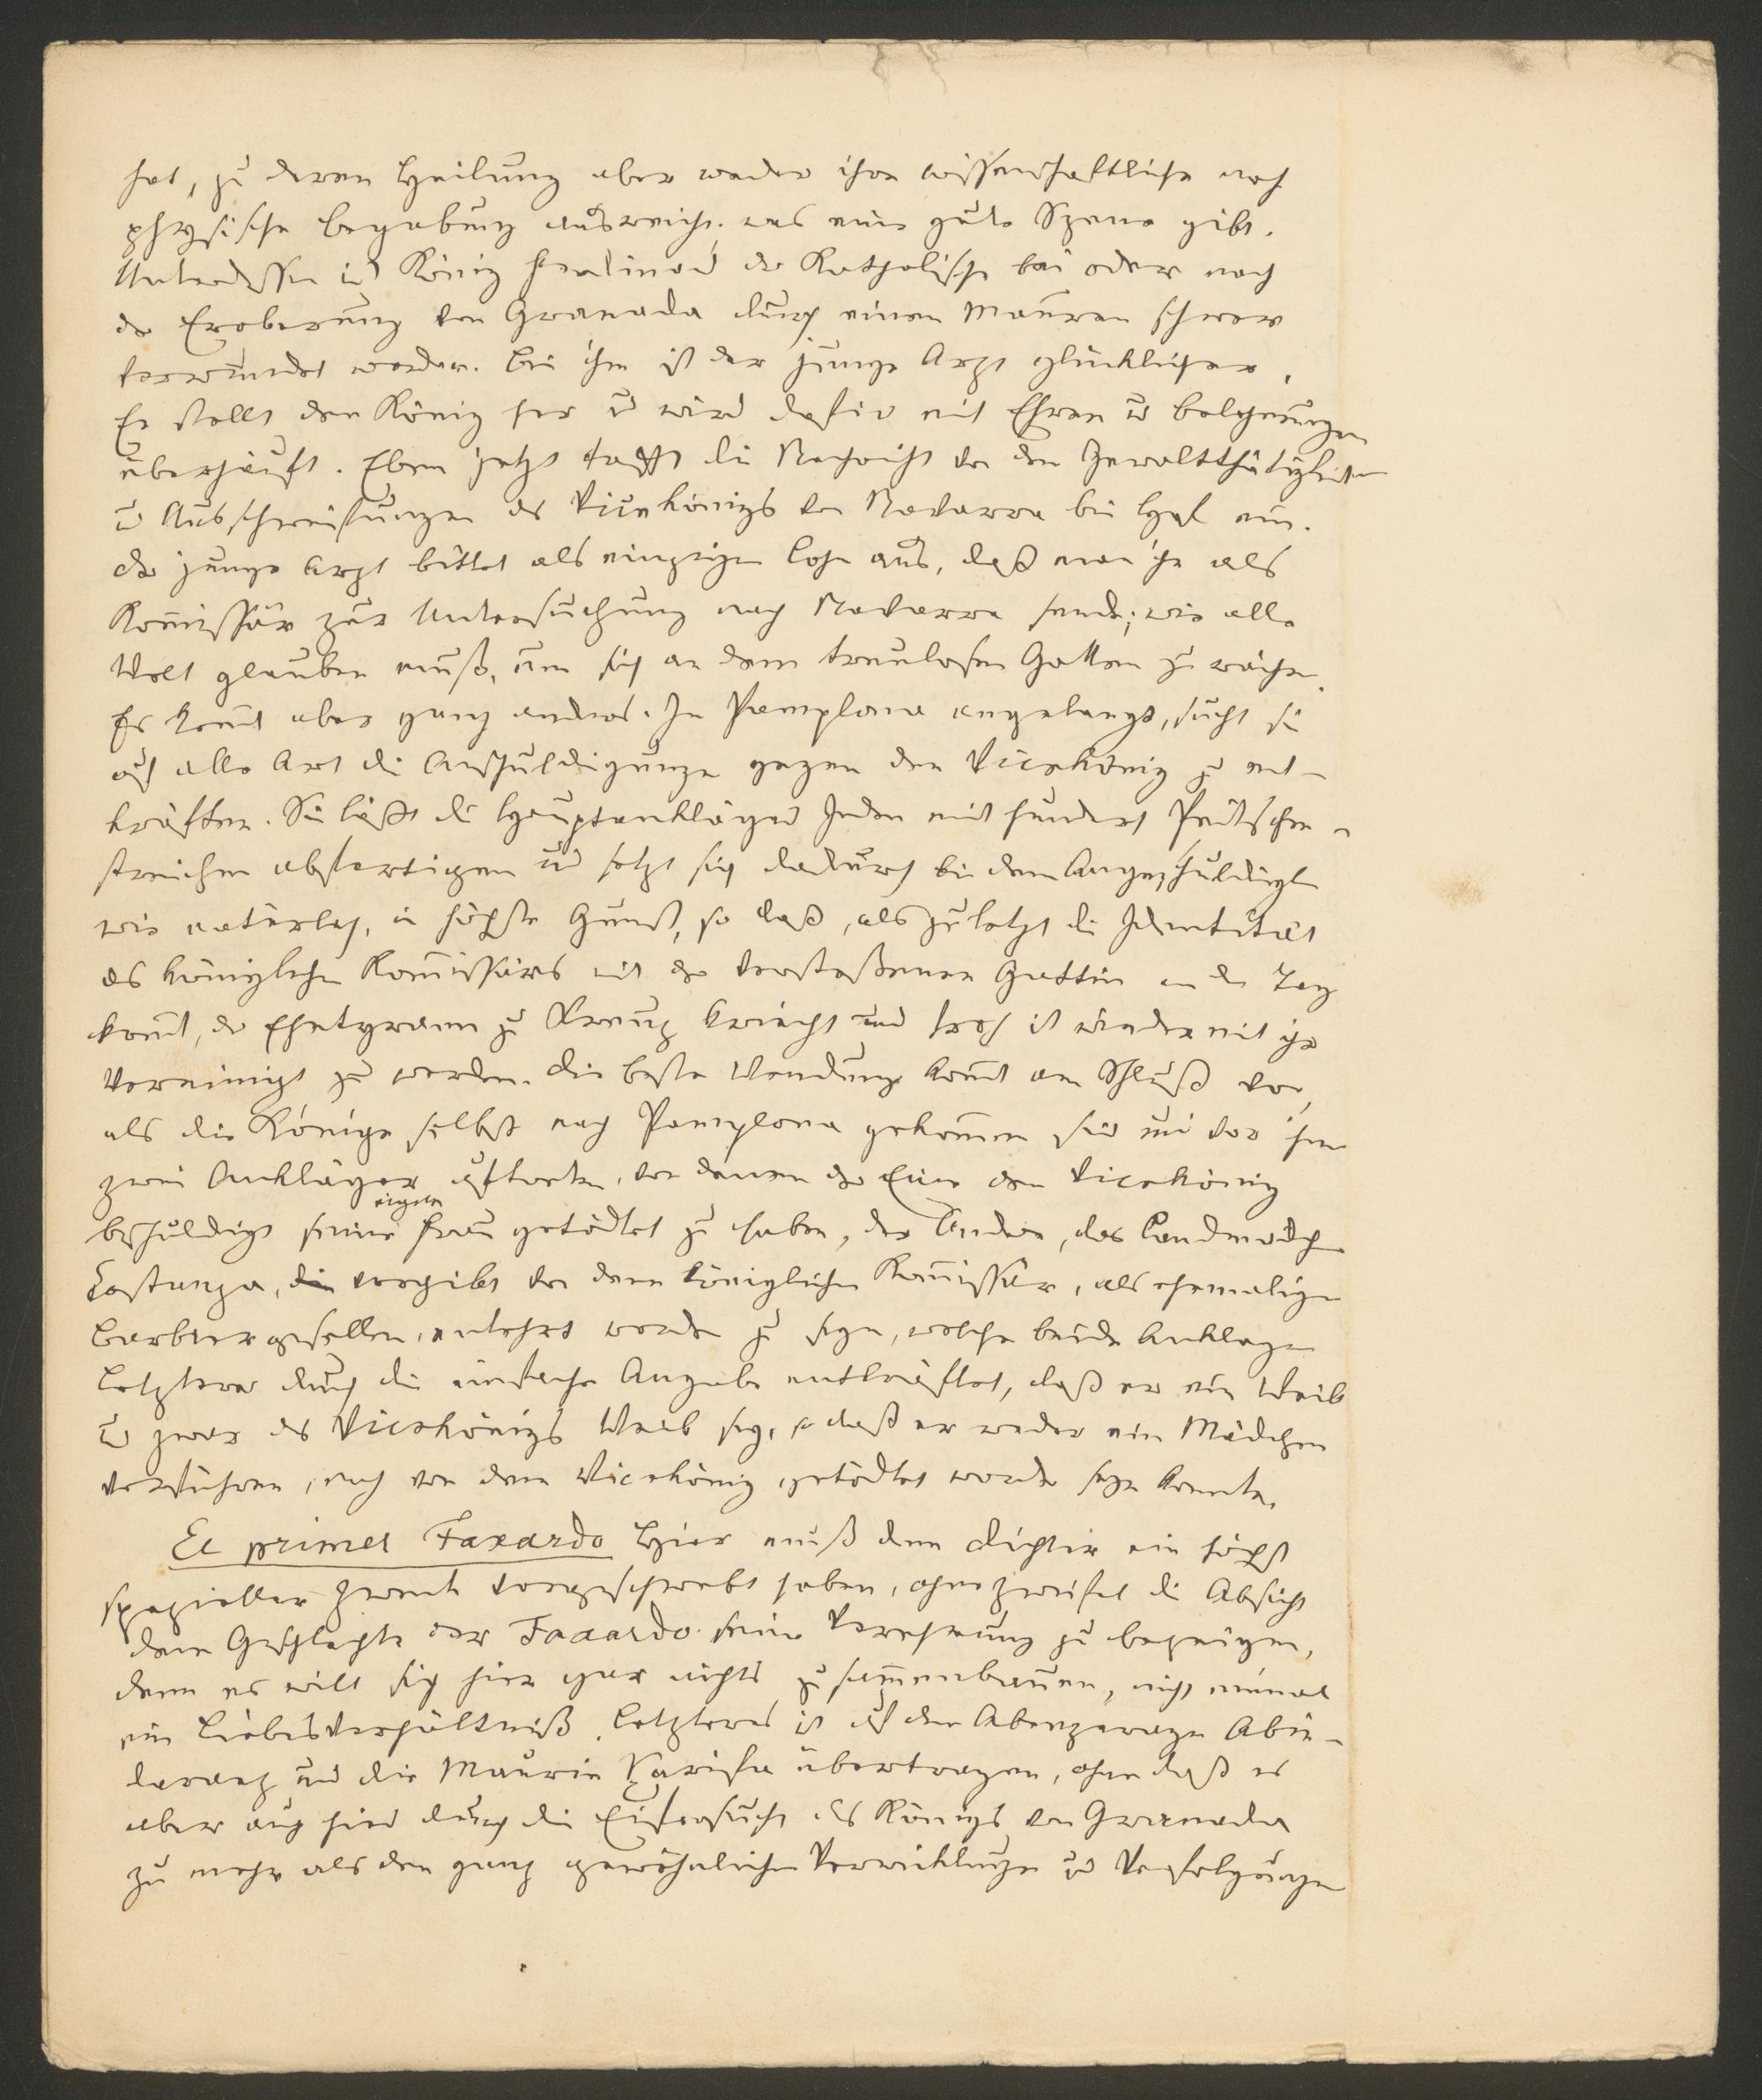 hat, zu deren Heilung aber weder ihre wissenschaftliche noch
physische Begabung ausreicht, was eine gute Szene gibt.
Unterdessen ist König Ferdinand der Katholische bei oder nach
der Eroberung von Granada durch einen Mauren schwer
verwundet worden. Bei ihm ist der junge Arzt glücklicher.
Er stellt den König her u wird dafür mit Ehren u Belohnungen
überhäuft. Eben jetzt trifft die Nachricht von den Gewaltthätigkeiten
u Ausschweifungen des Vicekönigs von Navarra bei Hof ein.
Der junge Arzt bittet als einzigen Lohn aus, daß man ihn als
Kom̅issär zur Untersuchung nach Navarra sende; wie alle
Welt glauben muß, um sich an dem treulosen Gatten zu rächen.
Es kom̅t aber ganz anders. In Pamplona angelangt, sucht sie
auf alle Art die Anschuldigungen gegen den Vicekönig zu ent-
kräften. Sie läßt die Hauptankläger Juden mit hundert Peitschen-
streichen abfertigen und setzt sich dadurch bei dem Angeschuldigten
wie natürlich, in höchste Gunst, so daß, als zuletzt die Identität
des königlichen Kom̅issärs mit der verstoßenen Gattin an den Tag
kom̅t, der Ehetyrann zu Kreuz kriecht und froh ist wieder mit ihr
vereinigt zu werden. Die beste Wendung kom̅t am Schluß vor,
als die Könige selbst nach Pamplona gekom̅en sind und vor ihnen
zwei Ankläger auftreten, von denen der Eine den Vicekönig
beschuldigt seine eigene Frau getödtet zu haben, der Andere, das Landmädchen
Costanza, die vorgibt von dem königlichen Kom̅issär, als ehemaligen
Barbiergesellen, entehrt worden zu seyn, welche beide Anklagen
Letzterer durch die einfache Angabe entkräftet, daß er ein Weib
u zwar des Vicekönigs Weib sey, so daß er weder ein Mädchen
verführen, noch von dem Vicekönig getödtet worden seyn konnte.
El primer Faxardo Hier muß dem Dichter ein höchst
spezieller Zweck vorgeschwebt haben, ohne Zweifel die Absicht
dem Geschlechte der Faxardo seine Verehrung zu bezeugen,
denn es will sich hier gar nichts zusam̅enbauen, nicht einmal
ein Liebesverhältniß. Letzteres ist auf den Abenzeragen Abin-
daraez und die Maurin Xarifa übertragen, ohne daß es
aber auch hier durch die Eifersucht des Königs von Granada
zu mehr als den ganz gewöhnlichen Verwicklungen und Verfolgungen